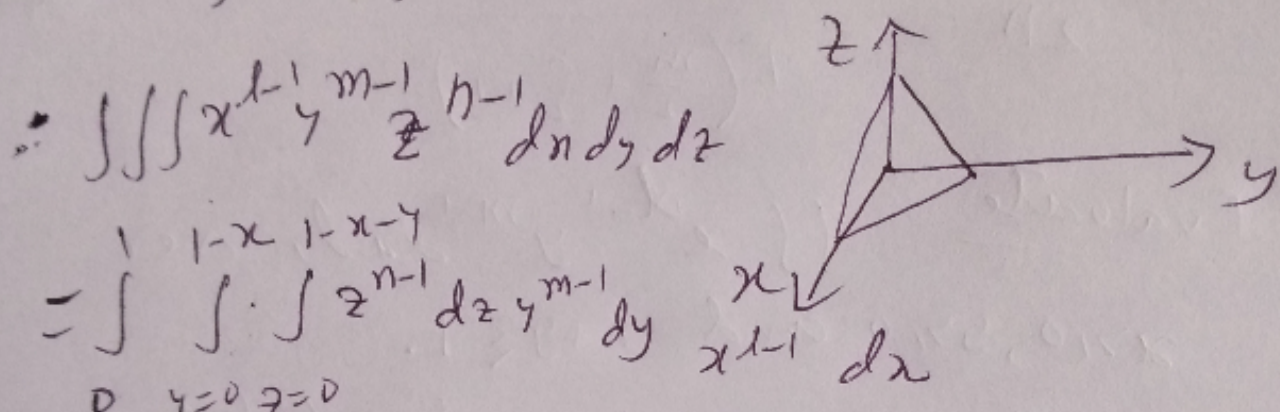 ∴ ∫∫∫ x^{l-1} y^{m-1} z^{n-1} dx dy dz
= ∫_{0}^{1} ∫_{y=0}^{1-x} ∫_{z=0}^{1-x-y} z^{n-1} dz y^{m-1} dy x^{l-1} dx
z
y
x